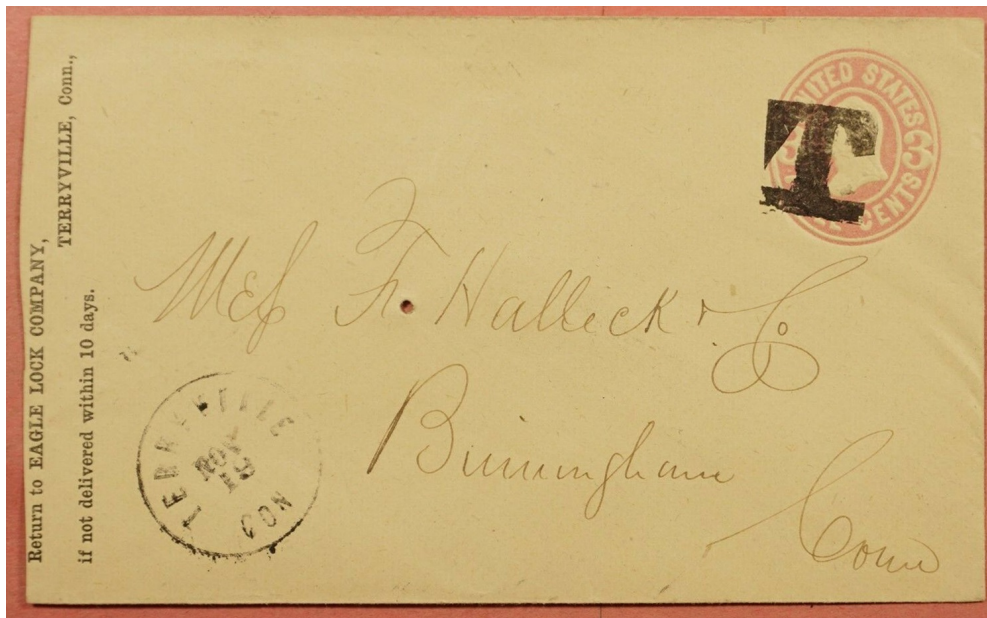 Return to EAGLE LOCK COMPANY,
TERRYVILLE, Conn.,
if not delivered within 10 days.
UNITED STATES
3
CENTS
T
F. Hallick & Co
Birmingham
Conn
TERRYVILLE
NOV
19
CON